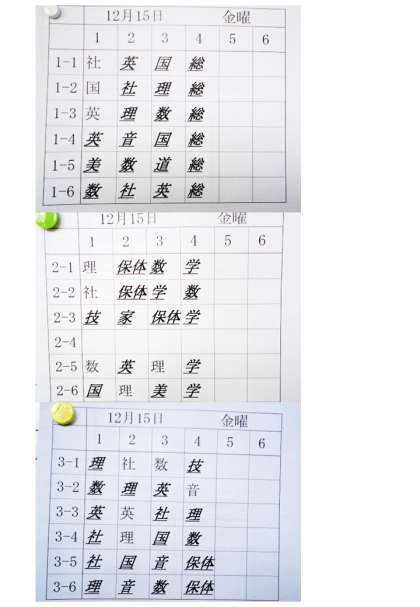 12月15日 金曜
1 2 3 4 5 6
1-1 社 英 国 総
1-2 国 社 理 総
1-3 英 理 数 総
1-4 英 音 国 総
1-5 美 数 道 総
1-6 数 社 英 総
12月15日 金曜
1 2 3 4 5 6
2-1 理 保体 数 学
2-2 社 保体 学 数
2-3 技 家 保体 学
2-4
2-5 数 英 理 学
2-6 国 理 美 学
12月15日 金曜
1 2 3 4 5 6
3-1 理 社 数 技
3-2 数 理 英 音
3-3 英 英 社 理
3-4 社 理 国 数
3-5 社 国 音 保体
3-6 理 音 数 保体